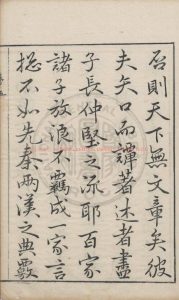 否則天下無文章矣彼
夫矢口而譚著述者盡
子長仲堅之流耶百家
諸子放浪不羈成一家言
總不如先秦兩漢之典覈